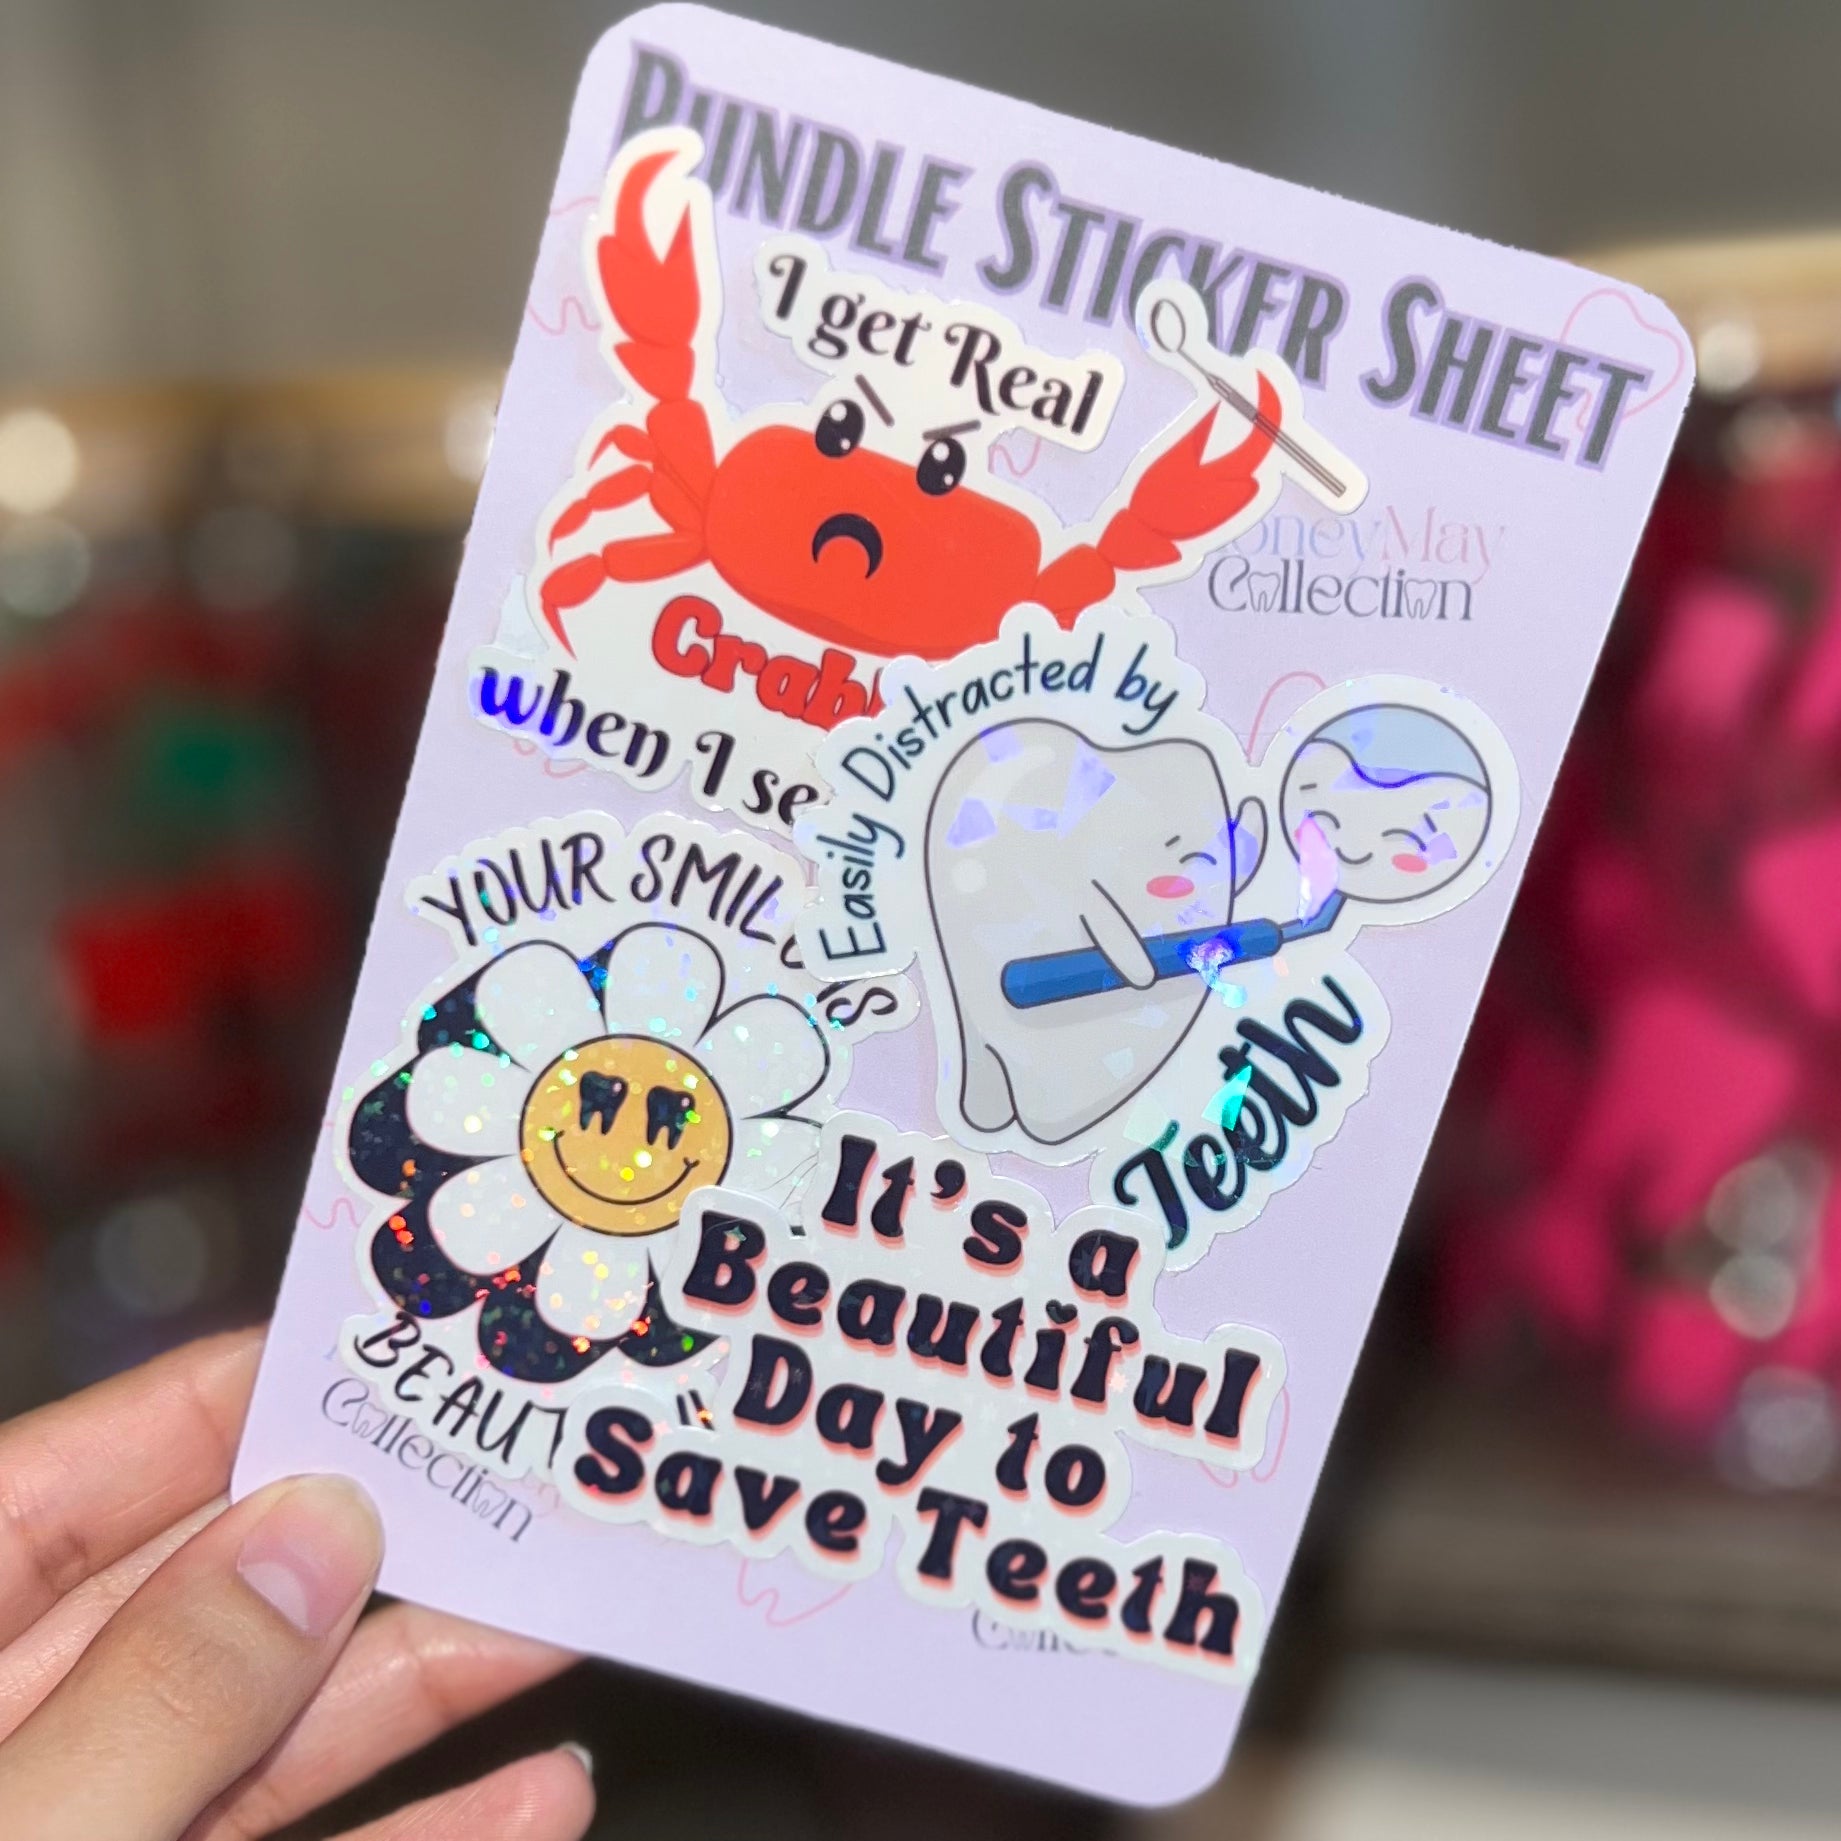 BUNDLE STICKER SHEET
I get Real
Crab
when I se
oneyMay
Collection
Easily Distracted by
Teeth
YOUR SMIL
'S
BEAUT
It's a
Beautiful
Day to
Save Teeth
Collection